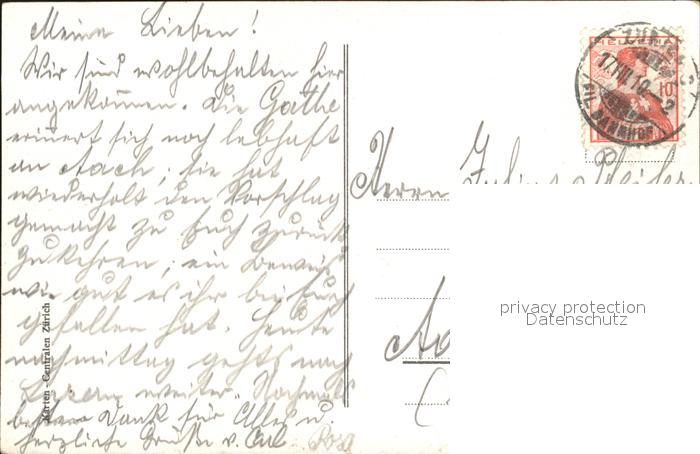 Meine Lieben!
Wir sind wohlbehalten hier
angekommen. Die Gothe
erinnert sich noch lebhaft
an Aach; sie hat
wiederholt den Vorschlag
gemacht zu Euch zurück
zu kehren; ein Beweis
wie gut es ihr bei Euch
gefallen hat. Heute
nachmittag gehts nach
Luzern weiter. Nochmals
besten Dank für Alles u.
herzliche Grüße v.
Karten-Centralen Zürich
HELVETIA
10
ZÜRICH
17.VII.10.-2
FIL. BAHNHOF
Herrn Julius
privacy protection
Datenschutz